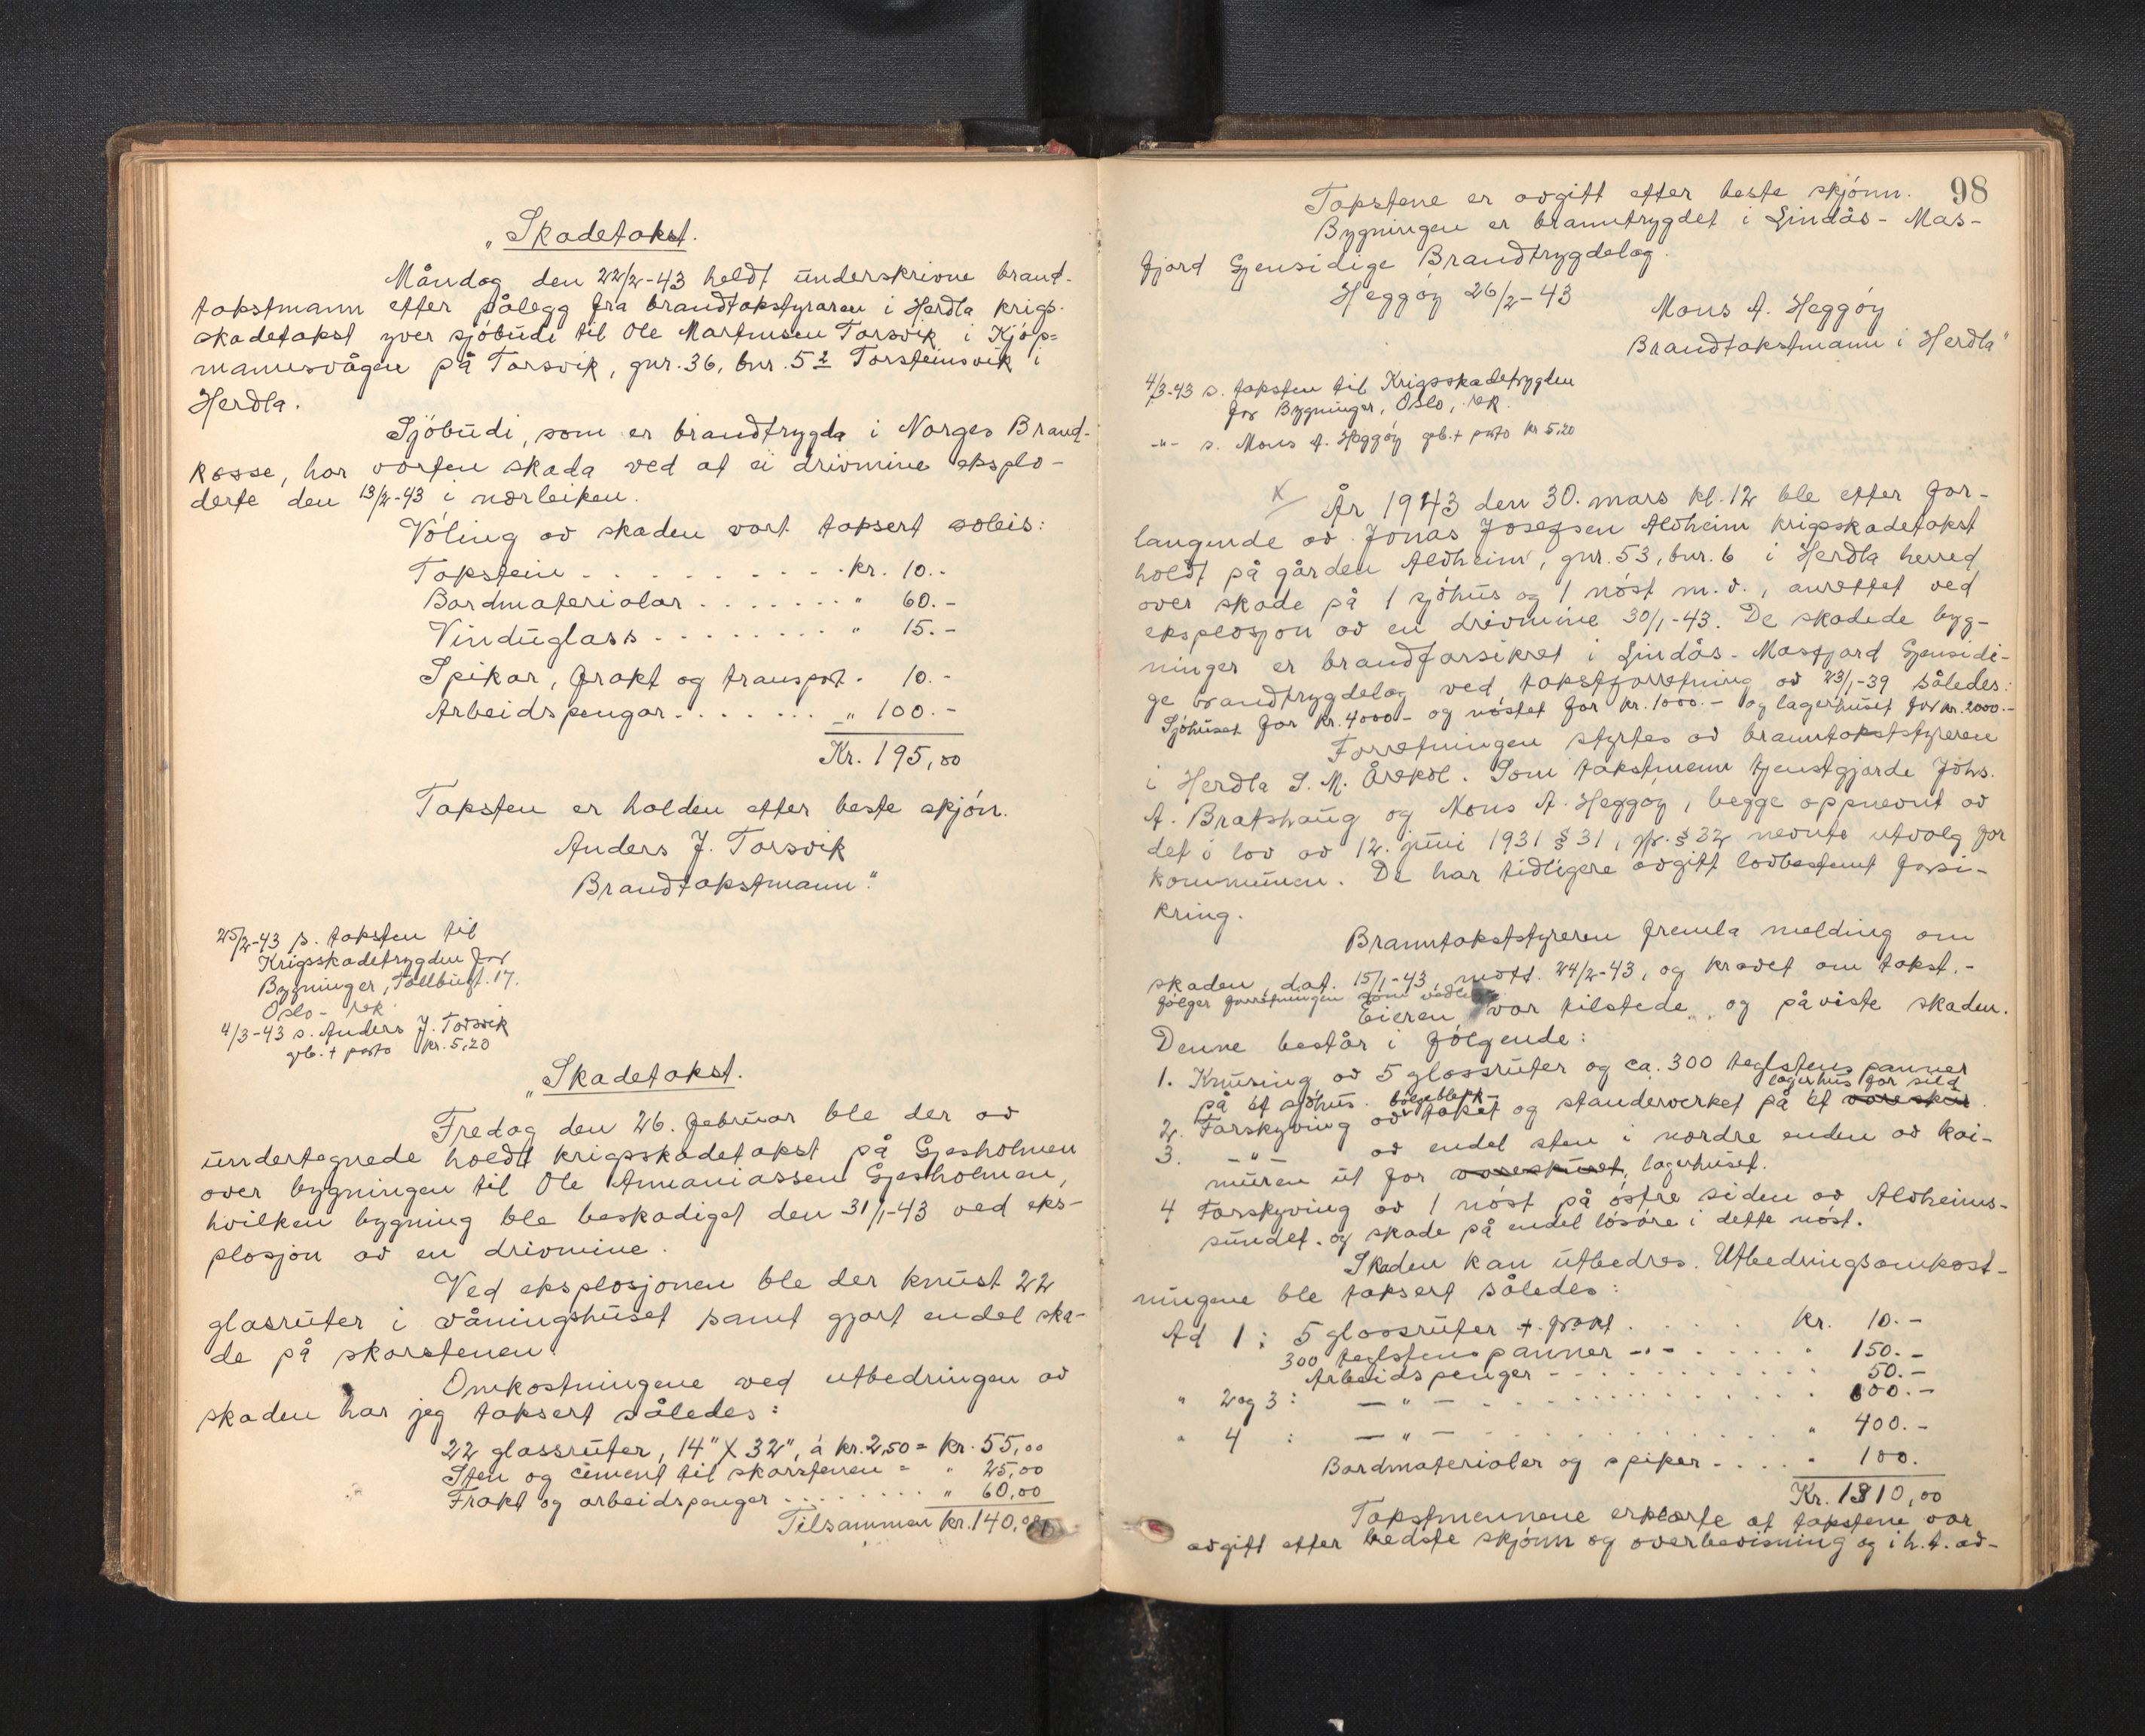 „Skadetakst.
Måndag den 22/2-43 heldt underskrivne brand-
takstmann efter pålegg fra brandtakstyraren i Herdla krigs-
skadetakst yver sjöbudi til Ole Martinsen Torsvik i Kjöp=
mannsvågen på Torsvik, gnr. 36, bnr. 52 Torsteinsvik i
Herdla.
Sjöbudi, som er brandtrygda i Norges Brand-
kasse, har vorten skada ved at ei drivmine eksplo-
derte den 13/2-43 i nærleiken.
Völing av skaden vart taksert soleis:
Takstein - . . . . . . . . . . kr. 10.-
Bordmaterialar . . . . . . . " 60.-
Vinduglass . . . . . . . . . " 15.-
Spikar, frakt og transport . 10.-
Arbeidspengar . . . . . . . " 100.-
Kr. 195,00
Taksten er halden efter beste skjön.
Anders J. Torsvik
Brandtakstmann."
25/2-43 s. taksten til
Krigsskadetrygden for
Bygninger, Tollbugt. 17.
Oslo - rek.
4/3-43 s. Anders J. Torsvik
gb. + porto kr. 5,20
„Skadetakst.
Fredag den 26. februar ble der av
undertegnede holdt krigsskadetakst på Gjesholmen
over bygningen til Ole Annaniassen Gjesholmen,
hvilken bygning ble beskadiget den 31/1-43 ved eks-
plosjon av en drivmine.
Ved eksplosjonen ble der knust 22
glasruter i våningshuset samt gjort endel ska-
de på skorstenen.
Omkostningene ved utbedringen av
skaden har jeg taksert således:
22 glassruter, 14" X 32", à kr. 2,50 = kr. 55,00
Sten og cement til skorstenen = " 25,00
Frakt og arbeidspenger . . . . . . . . " 60,00
Tilsammen kr. 140,00
98
Takstene er avgitt efter beste skjönn.
Bygningen er branntrygdet i Lindås - Mas-
fjord Gjensidige Brandtrygdelag.
Heggöy 26/2-43
Mons A. Heggöy
Brandtakstmann i Herdla"
4/3-43 s. taksten til Krigsskadetrygden
for Bygninger, Oslo, rek.
-"- s. Mons A. Heggöy gb. + porto kr 5,20
X År 1943 den 30. mars kl. 12 ble efter for-
langende av Jonas Josefsen Aldheim krigsskadetakst
holdt på gården Aldheim, gnr. 53, bnr. 6 i Herdla herred
over skade på 1 sjöhus og 1 nöst m.v., anrettet ved
eksplosjon av en drivmine 30/1-43. De skadede byg-
ninger er brandforsikret i Lindås - Masfjord Gjensidi-
ge brandtrygdelag ved takstforretning av 23/1-39 således:
Sjöhuset for kr. 4000.- og nöstet for kr. 1000.- og lagerhuset for kr. 2000.-
Forretningen styrtes av branntakststyreren
i Herdla S. M. Årskol. Som takstmenn tjenstgjorde Johs.
A. Bratshaug og Mons A. Heggöy, begge oppnevnt av
det i lov av 12. juni 1931 § 31, jfr. § 32 nevnte utvalg for
kommunen. De har tidligere avgitt lovbestemt forsi-
kring.
Branntakststyreren fremla melding om
skaden, dat. 15/1-43, mott. 24/2-43, og kravet om takst.-
fölger forretningen som vedlegg.
Eieren var tilstede, og påviste skaden.
Denne består i fölgende:
1. Knusing av 5 glassruter og ca. 300 teglstens panner
på et sjöhus.
2. Forskyving av bölgeblekk- taket og standerverket på et vareskur lagerhus for sild.
3. -"- av endel sten i nordre enden av kai-
muren ut for vareskuret, lagerhuset.
4 Forskyving av 1 nöst på östre siden av Aldheims-
sundet. og skade på endel lösöre i dette nöst.
Skaden kan utbedres. Utbedringsomkost-
ningene ble taksert således:
Ad 1: 5 glassruter + frakt . . . . . kr. 10.-
300 teglstens panner -"- . . . . . " 150.-
Arbeidspenger - . . . . . . . . . " 50.-
" 2 og 3: -"- . . . . . . . . . . " 600.-
" 4 : -"- . . . . . . . . . . " 400.-
Bordmaterialer og spiker . . . . " 100.
Kr. 1310,00
Takstmennene erklærte at takstene var
avgitt efter bedste skjönn og overbevisning og i h.t. av-